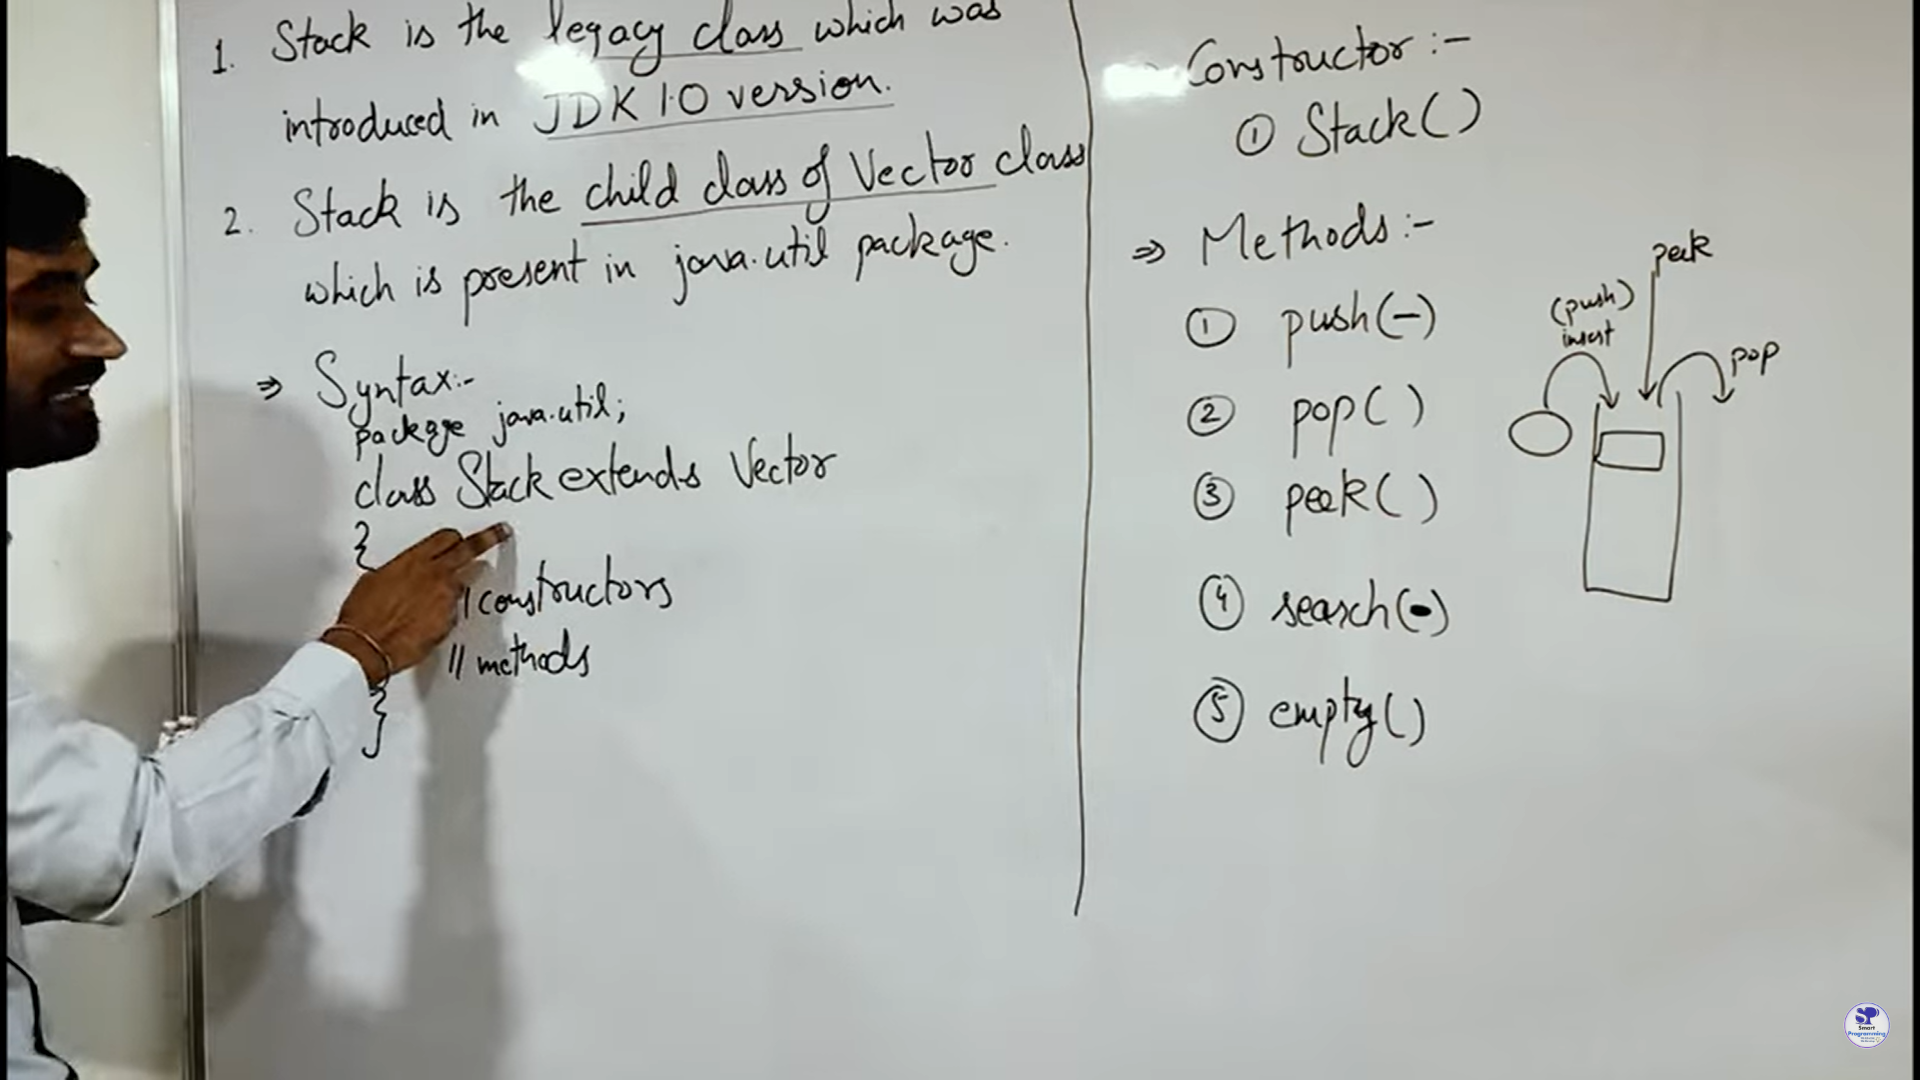 1. Stack is the legacy class which was
introduced in JDK 1.0 version.
2. Stack is the child class of Vector class
which is present in java.util package.
⇒ Syntax:-
package java.util;
class Stack extends Vector
{
// constructors
// methods
}
Constructor :-
① Stack()
⇒ Methods :-
① push(-)
② pop( )
③ peek( )
④ search(-)
⑤ empty()
peek
(push)
insert
pop
SP
Smart
Programming